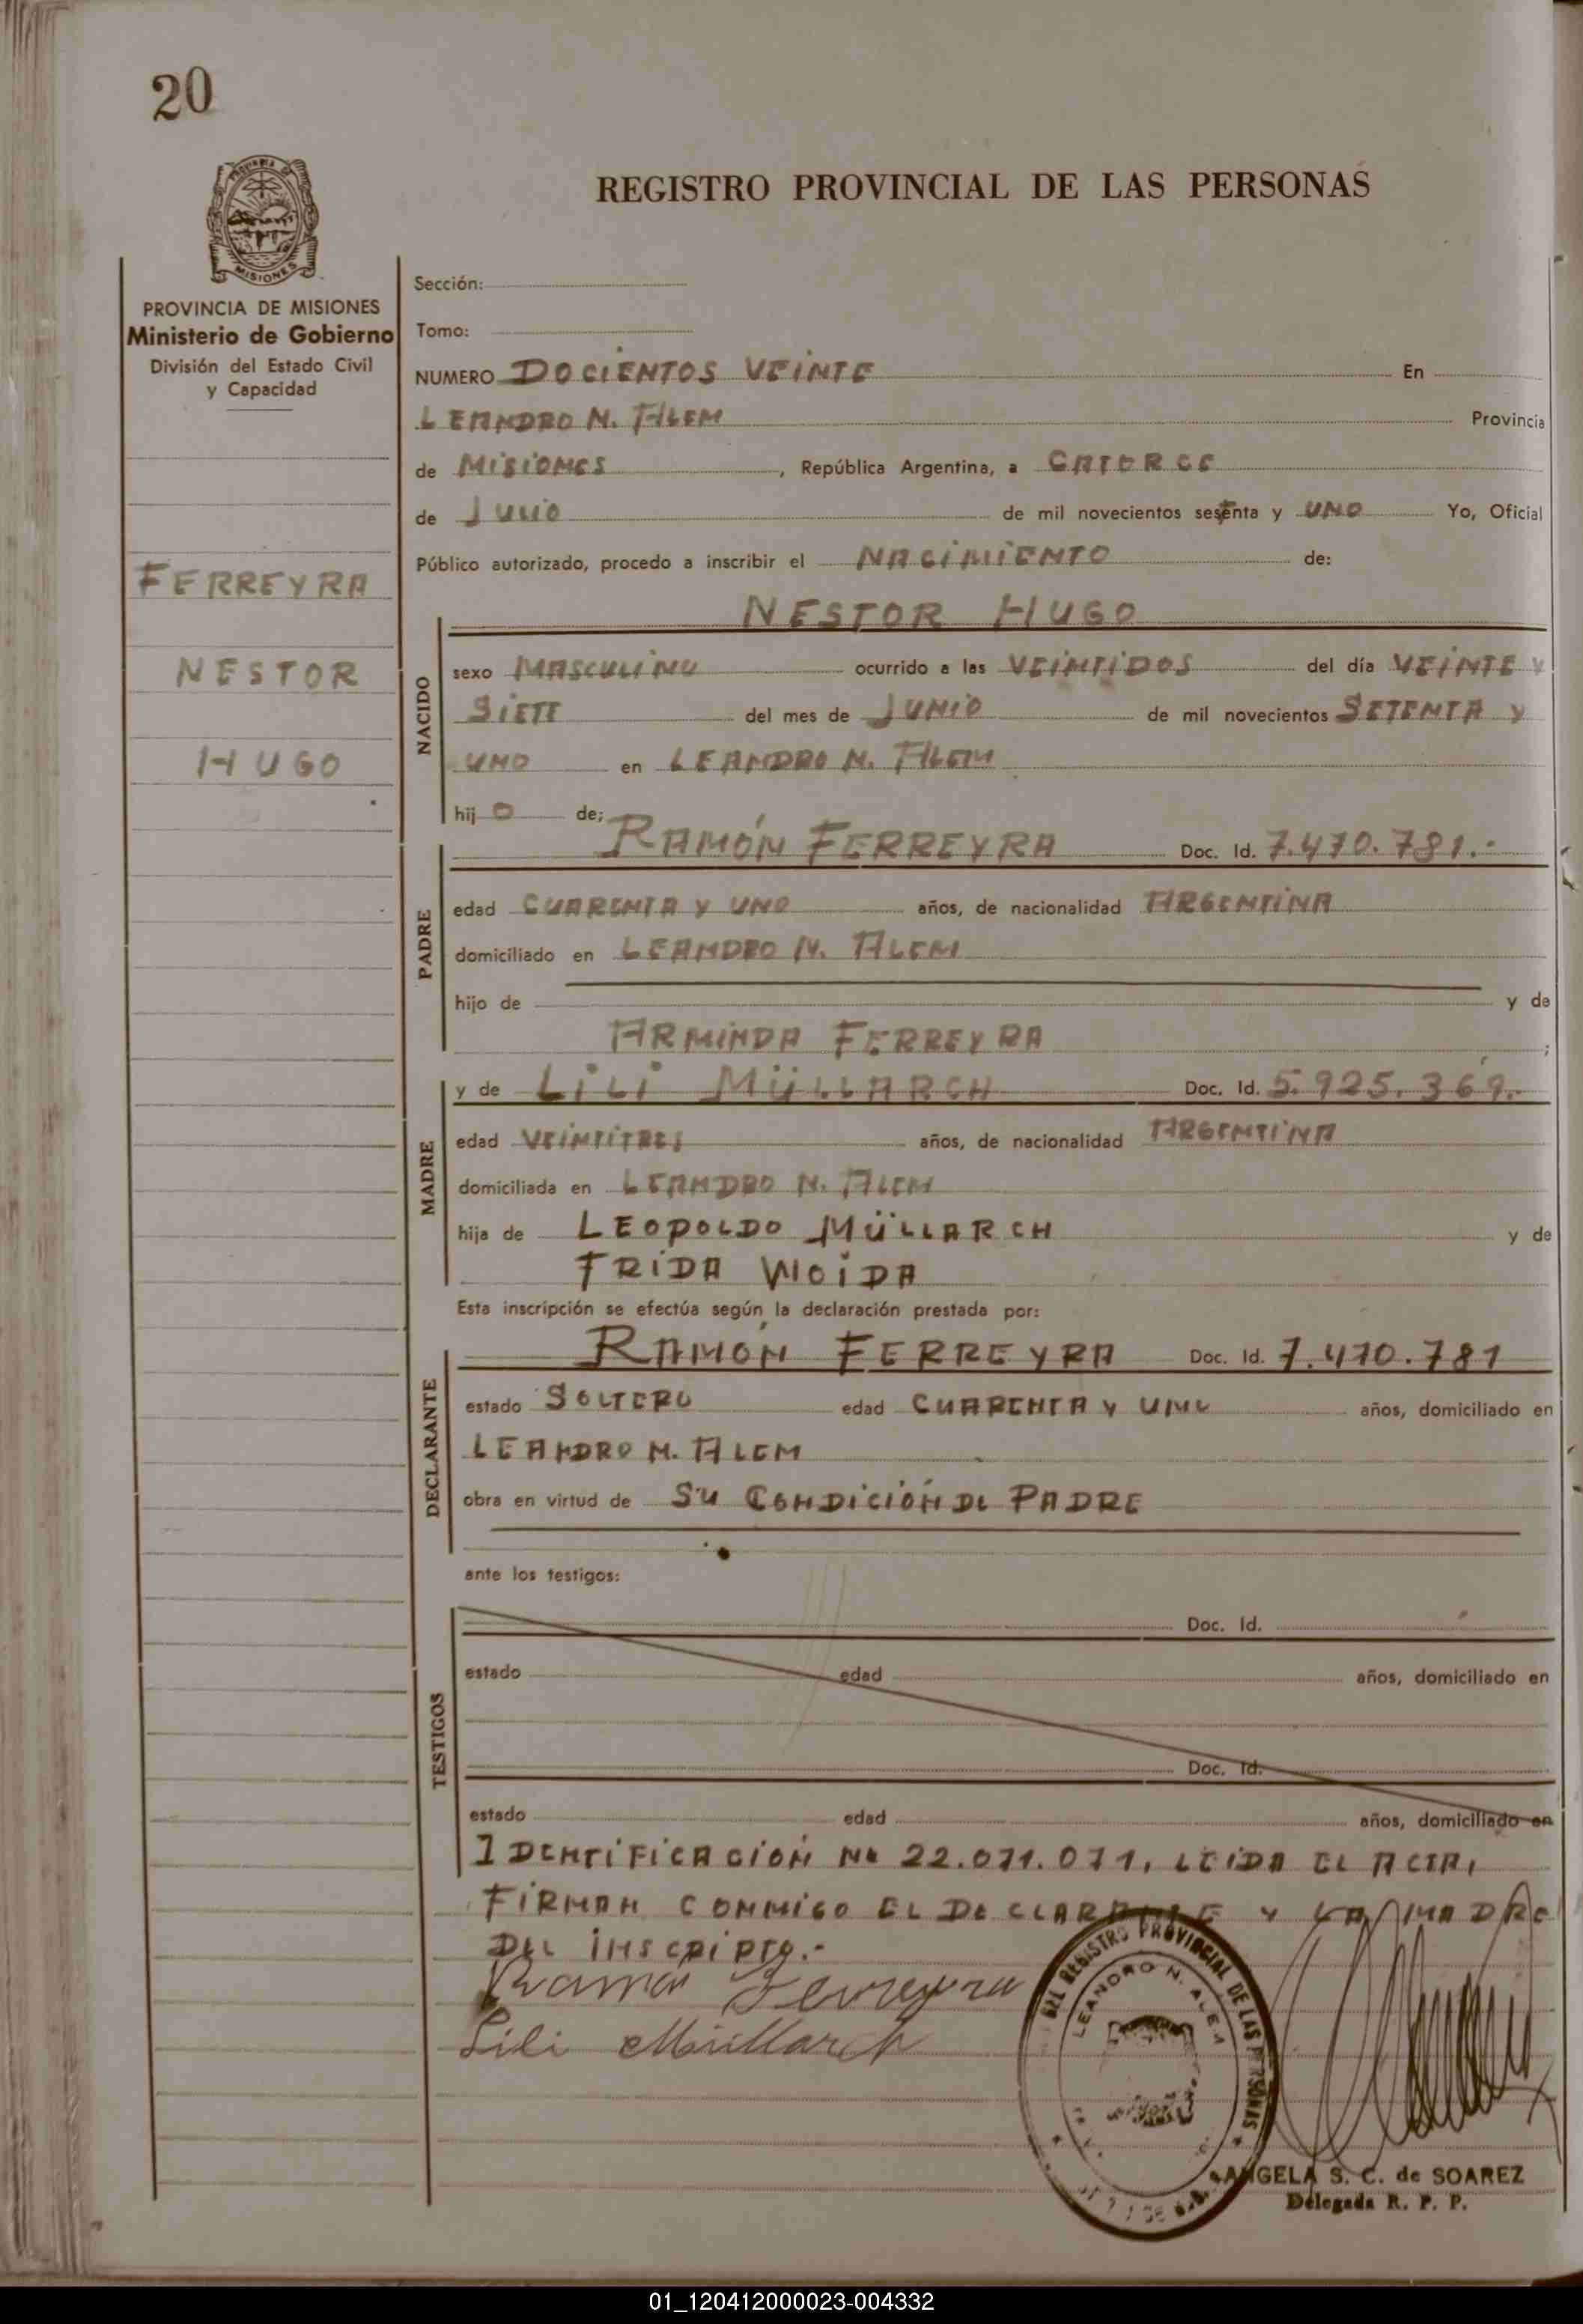 20
REGISTRO PROVINCIAL DE LAS PERSONAS
PROVINCIA DE MISIONES
Ministerio de Gobierno
División del Estado Civil
y Capacidad
FERREYRA
NESTOR
HUGO
Sección:
Tomo:
NUMERO DOCIENTOS VEINTE En
LEANDRO N. ALEM Provincia
de MISIONES, República Argentina, a CATORCE
de JULIO de mil novecientos setenta y UNO Yo, Oficial
Público autorizado, procedo a inscribir el NACIMIENTO de:
NESTOR HUGO
NACIDO
sexo MASCULINO ocurrido a las VEINTIDOS del día VEINTE Y
SIETE del mes de JUNIO de mil novecientos SETENTA Y
UNO en LEANDRO N. ALEM
hijO de;
PADRE
RAMÓN FERREYRA Doc. Id. 7.470.781.-
edad CUARENTA Y UNO años, de nacionalidad ARGENTINA
domiciliado en LEANDRO N. ALEM
hijo de y de
ARMINDA FERREYRA ;
MADRE
y de LILI MÜLLARCH Doc. Id. 5.925.369.
edad VEINTITRES años, de nacionalidad ARGENTINA
domiciliada en LEANDRO N. ALEM
hija de LEOPOLDO MÜLLARCH y de
FRIDA WOIDA
Esta inscripción se efectúa según la declaración prestada por:
DECLARANTE
RAMÓN FERREYRA Doc. Id. 7.470.781
estado SOLTERO edad CUARENTA Y UNO años, domiciliado en
LEANDRO N. ALEM
obra en virtud de SU CONDICIÓN DE PADRE
ante los testigos:
TESTIGOS
Doc. Id.
estado edad años, domiciliado en
Doc. Id.
estado edad años, domiciliado en
IDENTIFICACIÓN Nº 22.071.071, LEIDA EL ACTA,
FIRMAN CONMIGO EL DECLARANTE Y LA MADRE
DEL INSCRIPTO.-
Ramon Ferreyra
Lili Müllarch
DEL REGISTRO PROVINCIAL DE LAS PERSONAS
LEANDRO N. ALEM
ANGELA S. C. de SOAREZ
Delegada R. P. P.
01_120412000023-004332